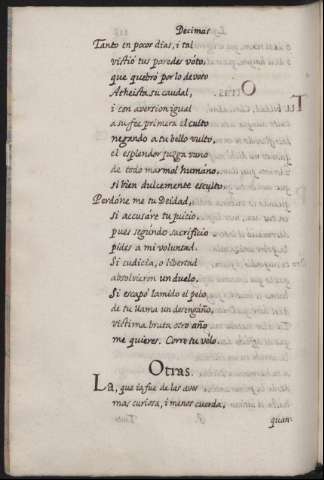 Decimas
Tanto en pocos dias, i tal
vistiò tus paredes voto,
que quebrò por lo devoto
Atheista su caudal,
i con aversion igual
a su fee primera el culto
negando a tu bello vulto,
el esplendor juzga vano
de todo marmol humano,
si bien dulcemente esculto
Perdòne me tu Deidad,
si accusàre tu juicio,
pues segundo sacrificio
pides a mi voluntad.
Si cudicia, o libertad
absolvieron un duelo,
Si escapò lamido el pelo
de tu llama un desengaño,
victima bruta otro año
me quieres. Corro tu velo.
Otras.
La, que ia fue de las aves
mas curiosa, i menos cuerda,
quan-